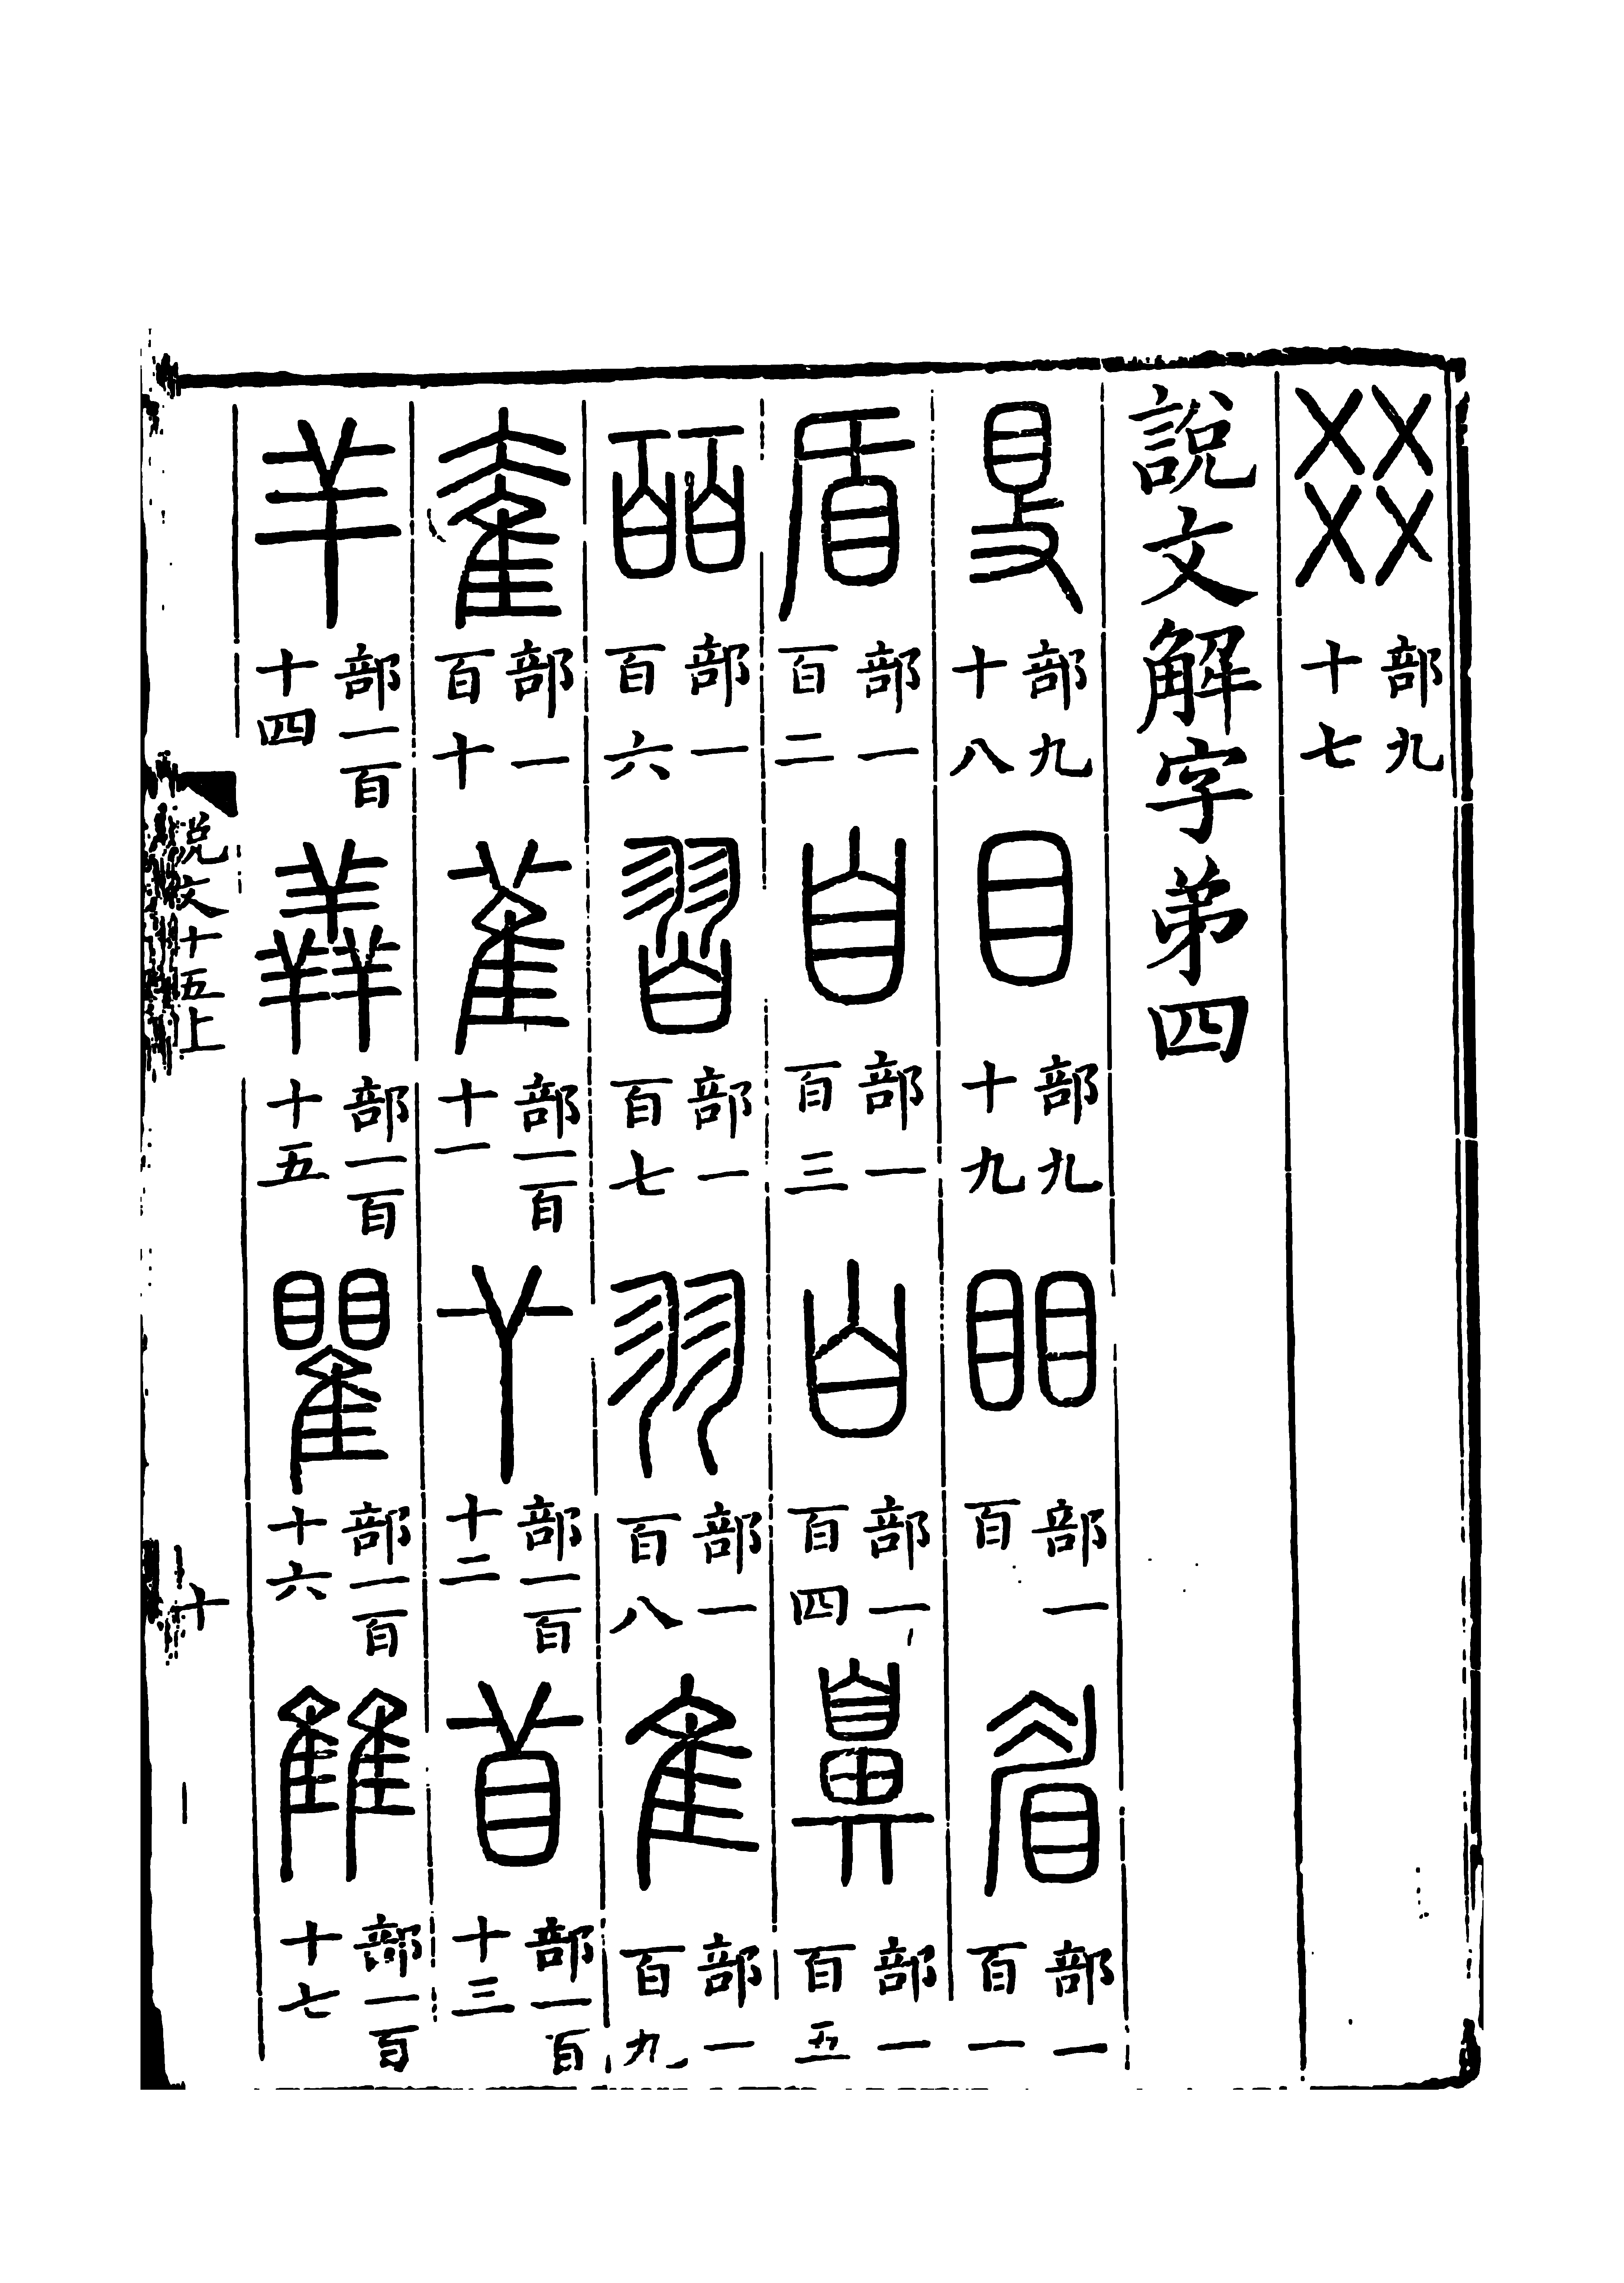 㸚 部九十七
說文解字弟四
𥄎 部九十八 目 部九十九 䀠 部一百 眉 部一百一
盾 部一百二 自 部一百三 白 部一百四 鼻 部一百五
皕 部一百六 習 部一百七 羽 部一百八 隹 部一百九
奞 部一百十 雈 部一百十一 𦫳 部一百十二 苜 部一百十三
羊 部一百十四 羴 部一百十五 瞿 部一百十六 雔 部一百十七
説文十五上 十